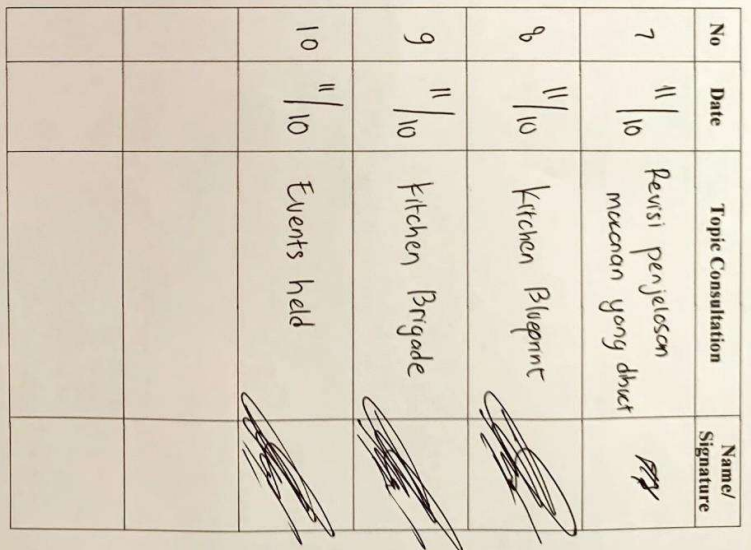 No Date Topic Consultation Name/
Signature
7 11/10 Revisi penjelasan
makanan yang dibuat
8 11/10 Kitchen Blueprint
9 11/10 Kitchen Brigade
10 11/10 Events held